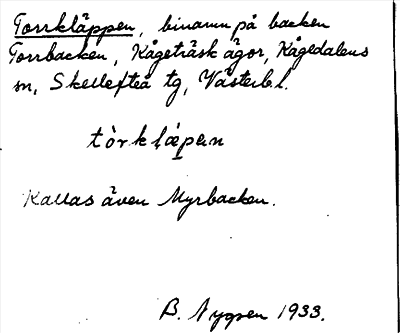 Torrkläppen, binamn på backen
Torrbacken, Kågeträsk ägor, Kågedalens
sn, Skellefteå tg, Västerb. l.
tòrkḷæpεn
Kallas även Myrbacken.
B. Nygren 1933.